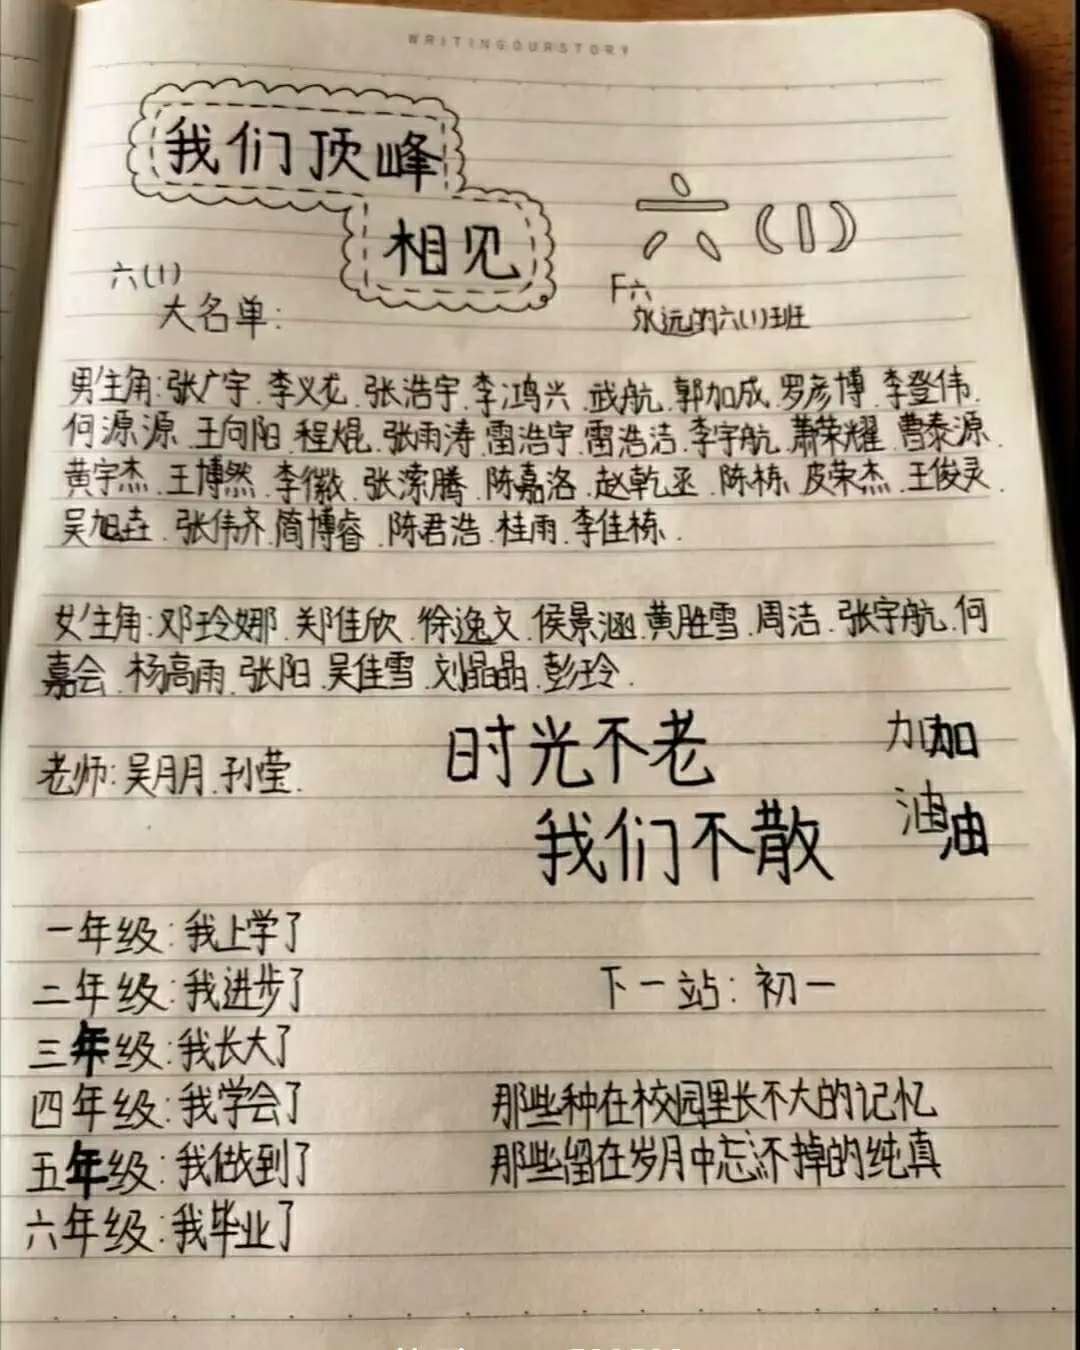 WRITINGOURSTORY
我们顶峰
相见
六(1)
六(1)
大名单:
F六
永远的六(1)班
男主角:张广宇.李义龙.张浩宇.李鸿兴.武航.郭加成.罗彦博.李登伟.
何源源.王向阳.程焜.张雨涛.雷浩宇.雷浩洁.李宇航.萧荣耀.曹泰源.
黄宇杰.王博然.李徽.张潆腾.陈嘉洛.赵乾丞.陈栋.皮荣杰.王俊灵.
吴旭垚.张伟齐.简博睿.陈君浩.桂雨.李佳栋.
女主角:邓玲娜.郑佳欣.徐逸文.侯景涵.黄胜雪.周洁.张宇航.何
嘉会.杨高雨.张阳.吴佳雪.刘晶晶.彭玲.
老师:吴朋月.孙莹.
时光不老
我们不散
加加
油油
一年级:我上学了
二年级:我进步了
三年级:我长大了
四年级:我学会了
五年级:我做到了
六年级:我毕业了
下一站:初一
那些种在校园里长不大的记忆
那些留在岁月中忘不掉的纯真